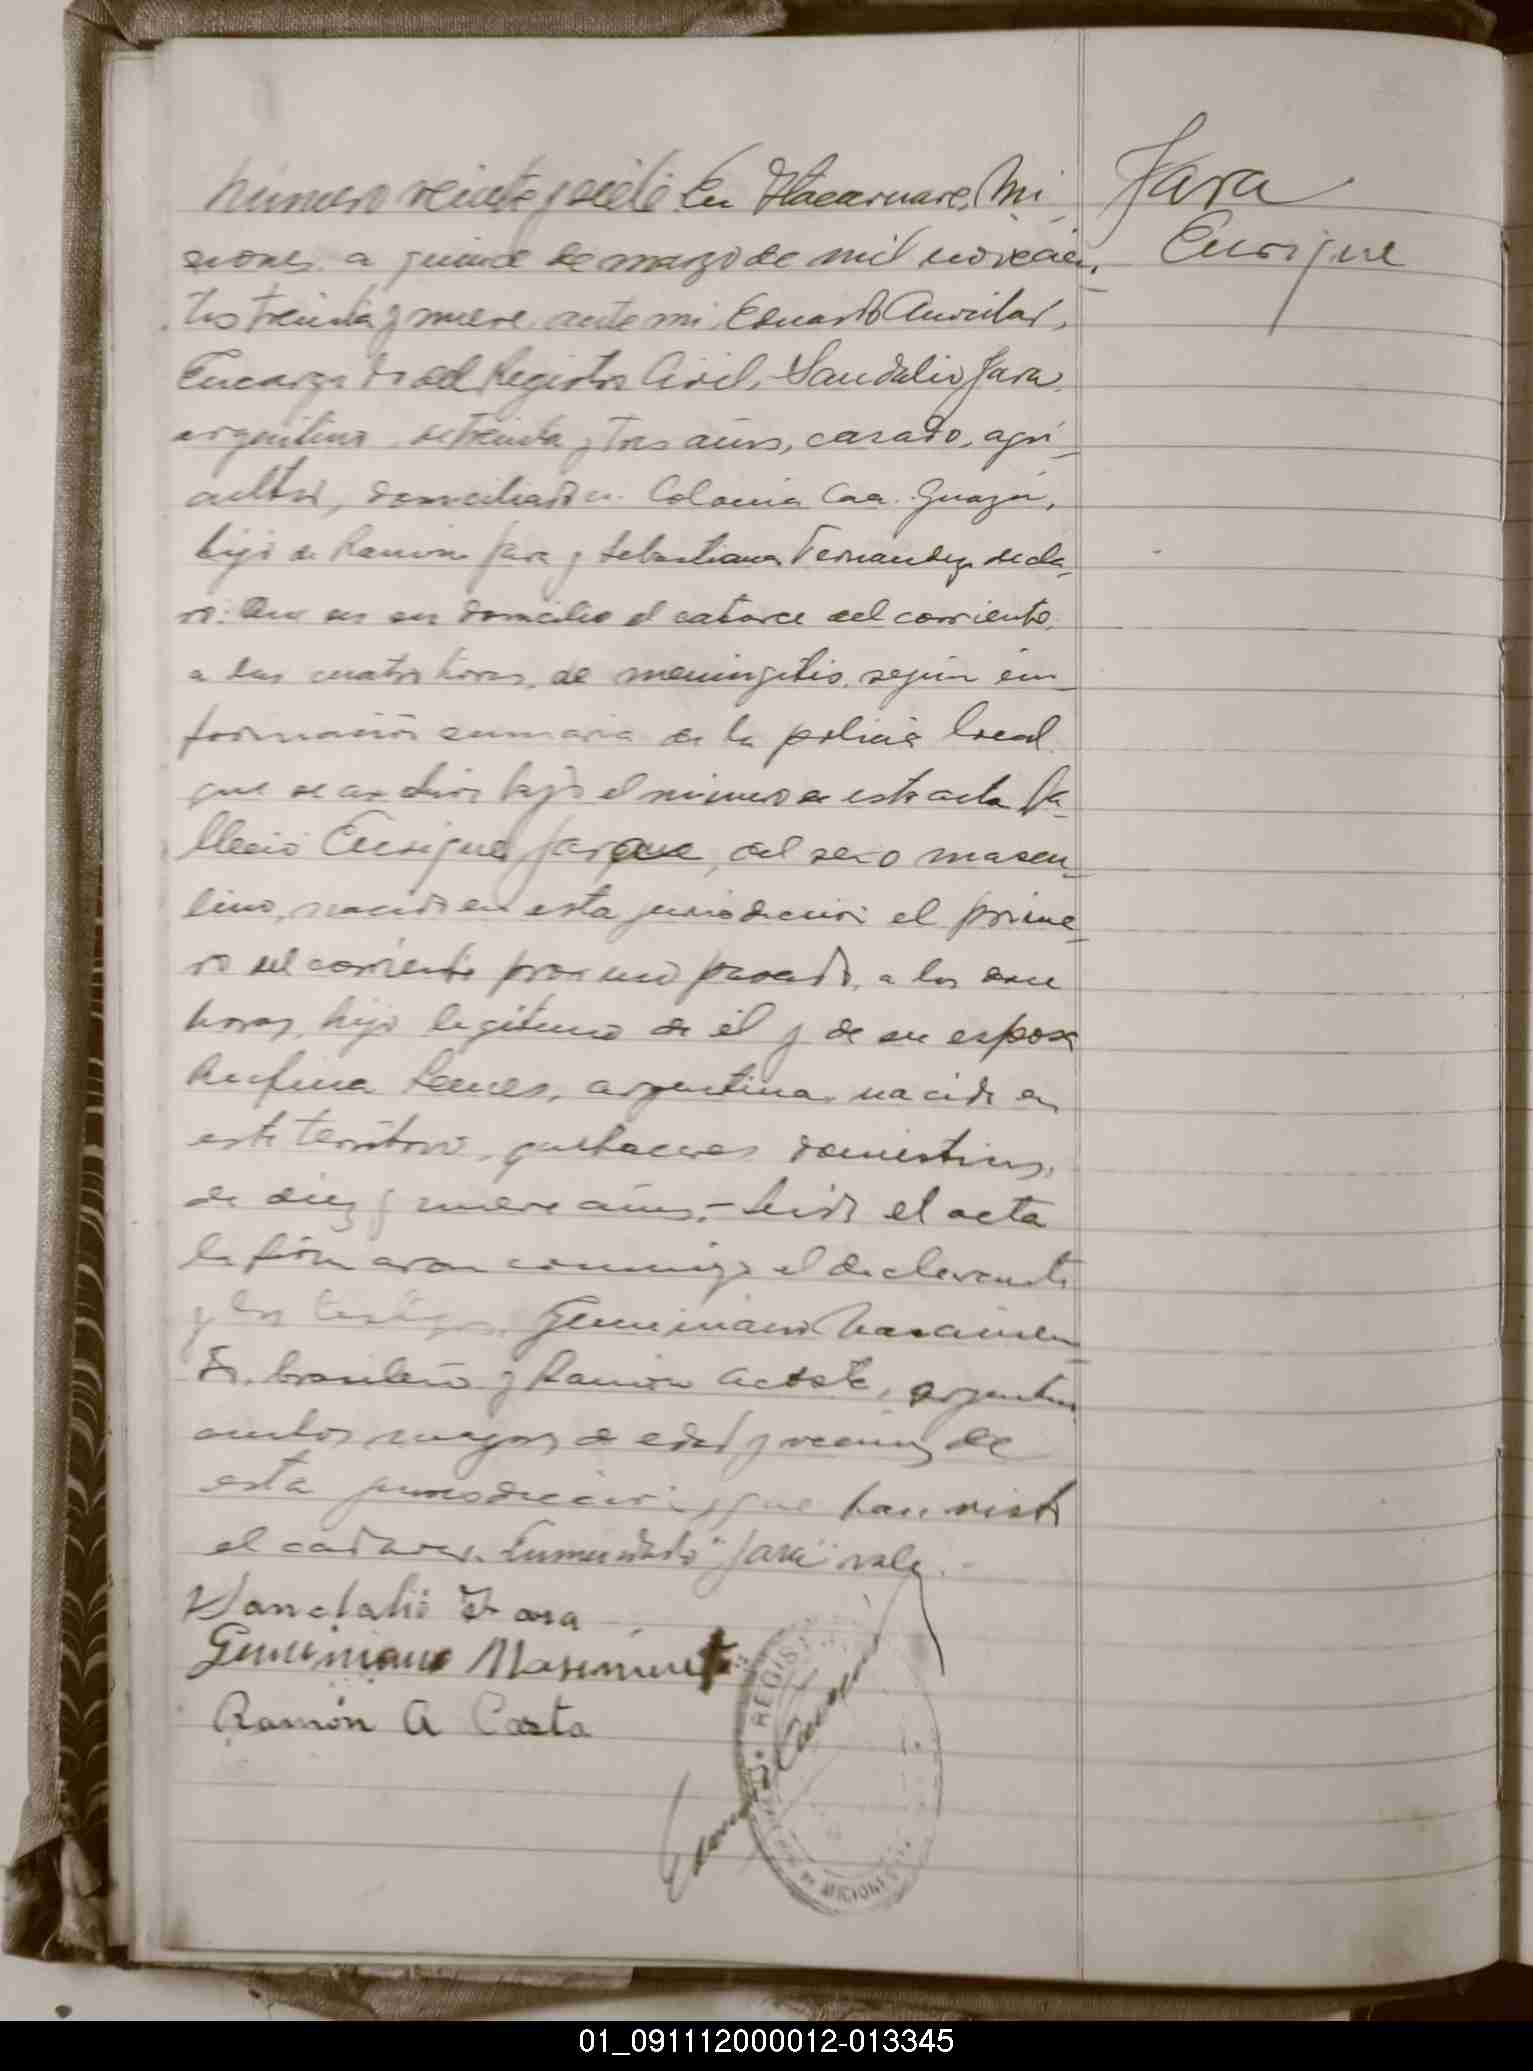 Jara
Enrique
Número veinte y siete. En Itacaruaré, Mi
siones a quince de marzo de mil novecien,
tos treinta y nueve, ante mi, Eduardo
Encargado del Registro Civil, Sandalio Jara,
argentino, de treinta y tres años, casado, agri
cultor, domiciliado en Colonia Caa-Guazú,
hijo de Ramón Jara y Sebastiana Fernandez, decla,
ró: Que en su domicilio el catorce del corriente,
a las cuatro horas, de meningitis, según in
formación sumaria de la policía local
que se archiva bajo el número de esta acta fa
lleció Enrique Jara, del sexo mascu
lino, nacido en esta jurisdicción el prime
ro del corriente proximo pasado, a las
horas, hijo legítimo de él y de su esposa
Rufina, argentina, nacida en
este territorio, quehaceres domésticos,
de diez y nueve años.- Leída el acta
la firmaron conmigo el declarante
y los testigos, Geminiano Nascimen
to, brasileño y Ramón Acosta, argentino
ambos mayores de edad y vecinos de
esta jurisdicción, que han visto
el cadaver. Enmendado "Jara" vale.-
Sandalio Jara
Geminiano Nasimento
Ramón A Costa
REGIS
MISIONES
01_091112000012-013345